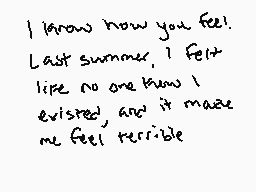 I know how you feel.
Last summer, I felt
like no one knew I
existed, and it made
me feel terrible